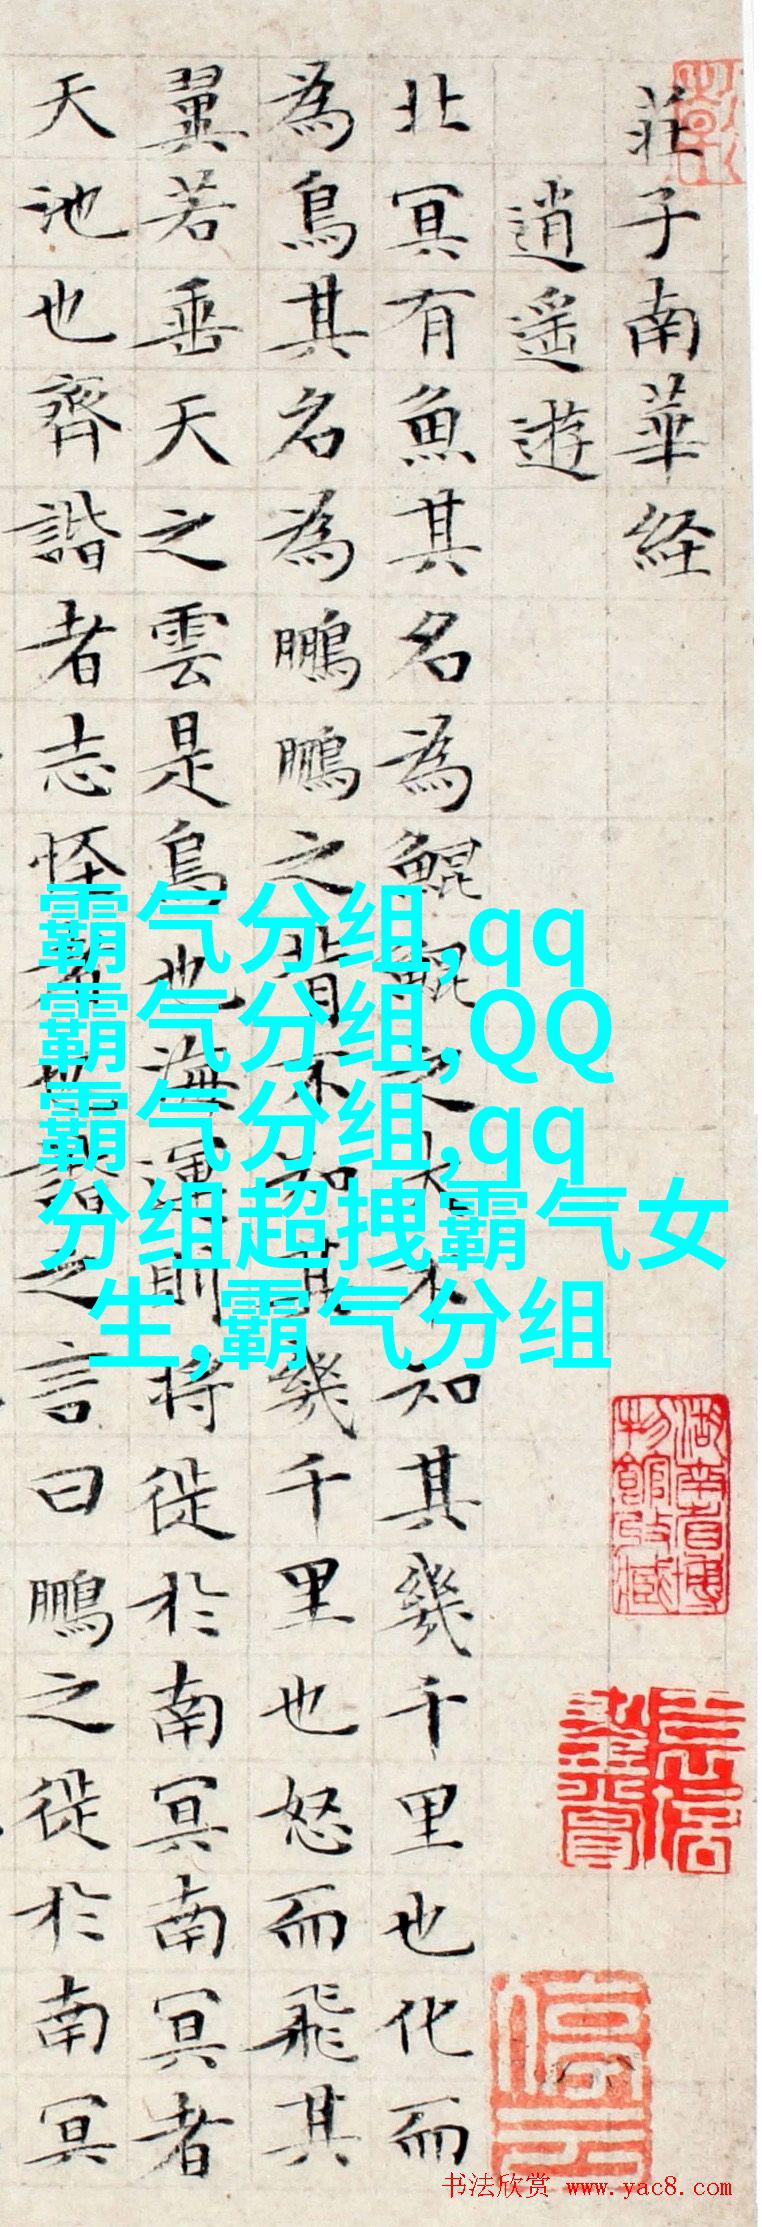 莊子南華経
逍遙遊
北冥有魚其名為鯤鯤之大不知其幾千里也化而
為鳥其名為鵬鵬之背不知其幾千里也怒而飛其
翼若垂天之雲是鳥也海運則將徙於南冥南冥者
天池也齊諧者志怪者也諧之言曰鵬之徙於南冥
霸气分组,qq
霸气分组,QQ
霸气分组,qq
分组超拽霸气女
生,霸气分组
湖南省博
物館收藏
书法欣赏 www.yac8.com